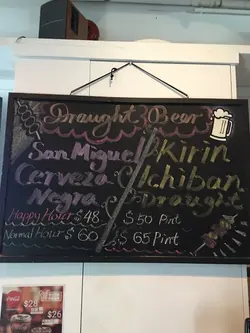 Draught Bear
San Miguel
Cerveza
Negra
Kirin
Ichiban
Draught
Happy Hour $48
$50 Pint
Normal Hour $60
$65 Pint
$28
$26